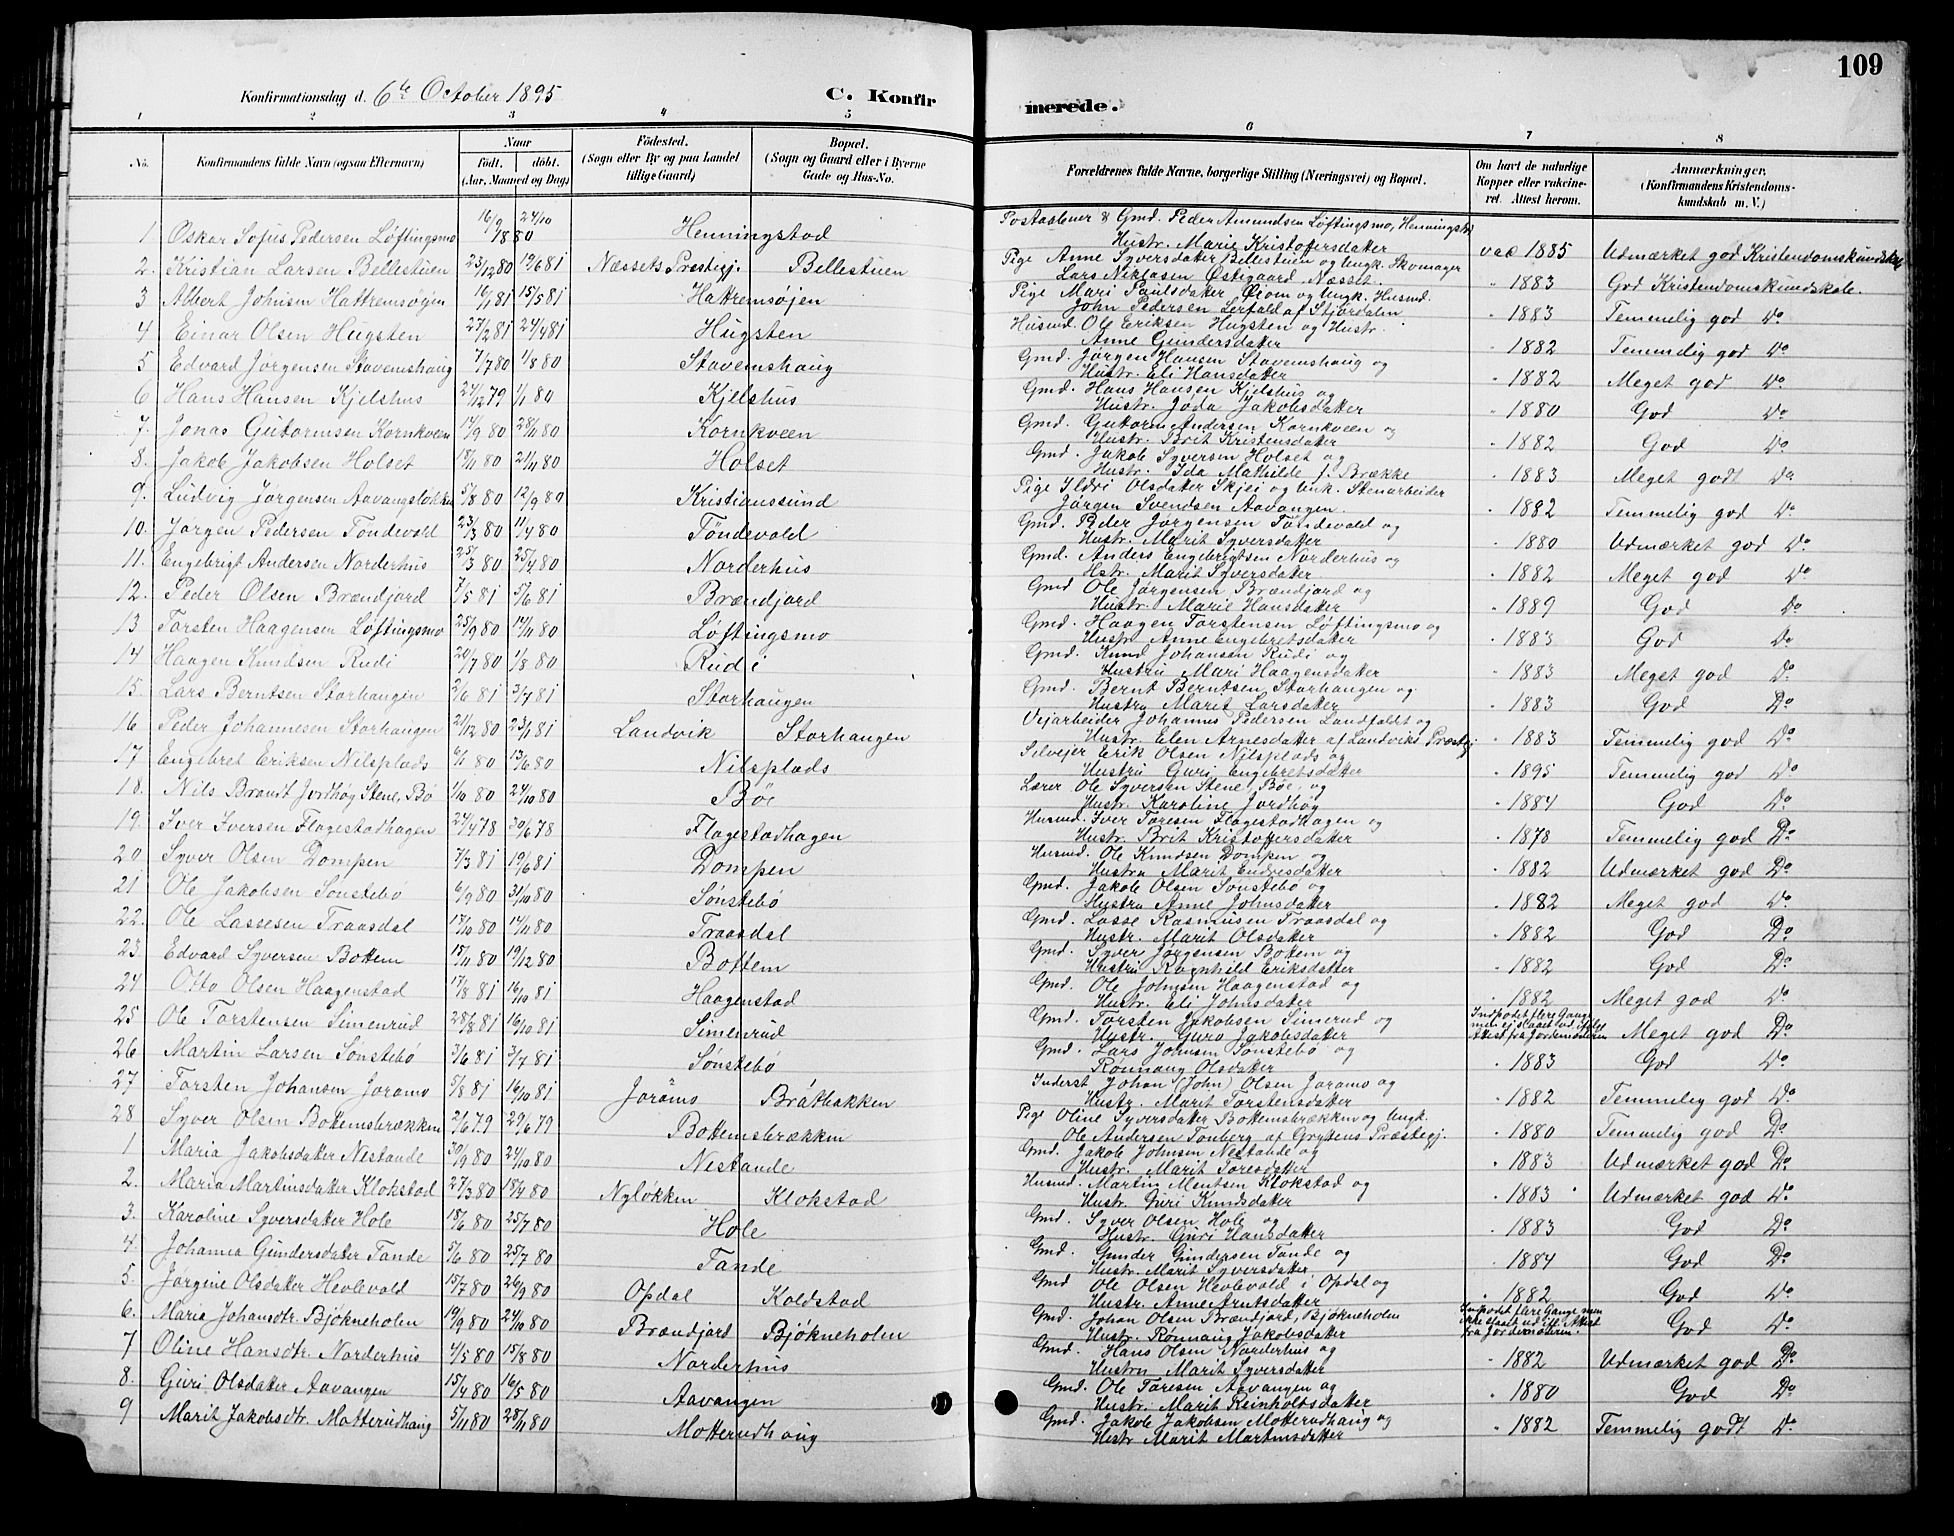 109
Konfirmationsdag d. 6te October 1895
C. Konfirmerede.
1 2 3 4 5 6 7 8
No. Konfirmandens fulde Navn (ogsaa Efternavn) Naar født. døbt. (Aar, Maaned og Dag) Fødested. (Sogn eller By og paa Landet tillige Gaard) Bopæl. (Sogn og Gaard eller i Byerne Gade og Hus-No. Forældrenes fulde Navne, borgerlige Stilling (Næringsvei) og Bopæl. Om havt de naturlige Kopper eller vakcineret. Attest herom. Anmærkninger. (Konfirmandens Kristendomskundskab m. V.)
1 Oskar Sofus Pedersen Løftingsmo 16/9 24/10 1880 Henningstad Postaabner & Gmd. Peder Amundsen Løftingsmo, Henningstad
Hustr. Marie Kristofersdatter vac 1885 Udmærket god Kristendomskundskab
2. Kristian Larsen Bellestuen 23/12 80 19/6 81 Næssets Prestegj. Bellestuen Pige Anne Syversdatter Bellestuen og Ungk. Skomager
Lars Niklasen Østigaard Næsset. " 1883 God Kristendomskundskab.
3 Albert Johnsen Hattremsøjen 16/1 81 15/5 81 Hattremsøjen Pige Mari Paulsdatter Øiom og Ungk. Husmd.
John Pedersen Lerfald af Stjørdalen " 1883 Temmelig god Do
4 Einar Olsen Hugsten 27/2 81 24/4 81 Hugsten Husmd. Ole Eriksen Hugsten og Hustr.
Anne Gundersdatter " 1882 Temmelig god Do
5 Edvard Jørgensen Stavemshaug 7/7 80 1/8 80 Stavemshaug Gmd. Jørgen Hansen Stavemshaug og
Hustr. Eli Hansdatter " 1882 Meget god Do
6 Hans Hansen Kjelshus 24/12 79 1/1 80 Kjelshus Gmd. Hans Hansen Kjelshus og
Hustr. Joda Jakobsdatter " 1880 God Do
7. Jonas Gutormsen Kornkveen 17/9 80 28/11 80 Kornkveen Gmd. Gutorm Andersen Kornkveen og
Hustr. Brit Kristensdatter " 1882 God Do
8. Jakob Jakobsen Holset 18/11 80 21/11 80 Holset Gmd. Jakob Syversen Holset og
Hustr. Ida Mathilde f. Brække " 1883 Meget godt Do
9. Ludvig Jørgensen Aavangsløkken 5/8 80 12/9 80 Kristianssund Pige Ildri Olsdatter Skjei og Unk. Stenarbeider
Jørgen Svendsen Aavangen. " 1882 Temmelig god Do
10. Jørgen Pedersen Tøndevold 23/3 80 11/4 80 Tøndevold Gmd. Peder Jørgensen Tøndevold og
Hustr. Marit Syversdatter " 1880 Udmærket god Do
11. Engebrigt Andersen Norderhus 25/3 80 25/4 80 Norderhus Gmd. Anders Engebrigtsen Norderhus og
Hstr. Marit Syversdatter " 1882 Meget god Do
12. Peder Olsen Brændjord 7/5 81 5/6 81 Brændjord Gmd Ole Jørgensen Brændjord og
Hustr. Marit Hansdatter " 1889 God Do
13 Torsten Haagensen Løftingsmo 25/9 80 14/11 80 Løftingsmo Gmd. Haagen Torstensen Løftingsmo og
Hustr. Anne Engebretsdatter " 1883 God Do
14 Haagen Knudsen Rudi 20/7 80 1/8 80 Rudi Gmd. Knud Johansen Rudi og
Hustru Mari Haagensdatter " 1883 Meget god Do
15. Lars Berntsen Storhaugen 2/6 81 3/7 81 Storhaugen Gmd. Bernt Berntsen Storhaugen og
Hustru Marit Larsdatter " 1883 God Do
16 Peder Johannesen Storhaugen 21/12 80 23/1 81 Landvik Storhaugen Vejarbeider Johannes Pedersen Landfaldt og
Hustr. Elen Arnesdatter af Landviks Præstegj " 1883 Temmelig god Do
17 Engebret Eriksen Nilsplads 6/1 80 13/6 80 Nilsplads Selvejer Erik Olsen Nilsplads og
Hustru Guri Engebretsdatter " 1895 Temmelig god Do
18. Nils Brandt Jordhøg Stene, Bø 1/10 80 24/10 80 Bøe Lærer Ole Syversen Stene Bøe og
Hustr. Karoline Jordhøg " 1884 God Do
19. Iver Iversen Flagestadhagen 24/4 78 30/6 78 Flagestadhagen Husmd. Iver Toresen Flagestadhagen og
Hustr. Brit Kristoffersdatter " 1878 Temmelig god Do
20 Syver Olsen Dompen 7/3 81 19/6 81 Dompen Husmd. Ole Knudsen Dompen og
Hustru Marit Endresdatter " 1882 Udmærket god Do
21 Ole Jakobsen Sønstebø 6/9 80 31/10 80 Sønstebø Gmd. Jakob Olsen Sønstebø og
Hustru Anne Johnsdatter " 1882 Meget god Do
22. Ole Lassesen Traasdal 17/10 80 14/11 80 Traasdal Gmd. Lasse Rasmusen Traasdal og
Hustr. Marit Olsdatter " 1882 God Do
23. Edvard Syversen Bottem 15/11 80 19/12 80 Bottem Gmd. Syver Jørgensen Bottem og
Hustru Ragnhild Eriksdatter " 1882 God Do
24 Otto Olsen Haagenstad 17/8 81 16/10 81 Haagenstad Gmd. Ole Johnsen Haagenstad og
Hustr. Eli Johnsdatter " 1882 Meget god Do
25 Ole Torstensen Simenrud 28/8 81 16/10 81 Simenrud Gmd. Torsten Jakobsen Simerud og
Hustr. Guro Jakobsdatter Indpodet flere Gange men ej slaaet ud ifølge Attest fra Jordemoderen Meget god Do
26 Martin Larsen Sønstebø 3/6 81 3/7 81 Sønstebø Gmd. Lars Johnsen Sønstebø og
Rønnaug Olsdatter " 1883 God Do
27 Torsten Johansen Joramo 5/8 81 16/10 81 Joramo Bråtbakken Inderst Johan (John) Olsen Joramo og
Hustr. Marit Torstensdatter " 1882 Temmelig god Do
28 Syver Olsen Bottemsbrækken 2/6 79 29/6 79 Bottemsbrækken Pige Oline Syversdatter Bottemsbrækken og Ungk.
Ole Andersen Tonberg af Gryttens Præstegj. " 1880 Temmelig god Do
1 Maria Jakobsdatter Nestande 30/9 80 24/10 80 Nestande Gmd. Jakob Johnsen Nestande og
Hustr. Marit Toresdatter " 1883 Udmærket god Do
2. Maria Martinsdatter Klokstad 27/3 80 18/4 80 Nyløkken Klokstad Husmd. Martin Mentsen Klokstad og
Hustr. Guri Knudsdatter " 1883 Udmærket god Do
3. Karoline Syversdatter Hole 18/6 80 25/7 80 Hole Gmd. Syver Olsen Hole og
Hustr. Guri Hansdatter " 1883 God Do
4. Johanna Gundersdatter Tande 5/6 80 25/7 80 Tande Gmd. Gunder Gundersen Tande og
Hustr. Marit Syversdatter " 1884 God Do
5. Jørgine Olsdatter Hevlevold 15/7 80 26/9 80 Opdal Koldstad Gmd Ole Olsen Hevlevold i Opdal og
Hustr. Anne Arntsdatter " 1882 God Do
6. Maria Johansdtr. Bjøkneholen 19/9 80 24/10 80 Brændjord Bjøkneholen Gmd. Johan Olsen Brændjord, Bjøkneholm
Hustr. Rønnaug Jakobsdatter Indpodet flere Gange men ikke slaaet ud ifl. Attest fra Jordemoderen. God Do
7 Oline Hansdtr. Norderhus 4/5 80 15/8 80 Norderhus Gmd. Hans Olsen Norderhus og
Hustru Marit Syversdatter " 1882 Udmærket god Do
8. Guri Olsdatter Aavangen 15/4 80 16/5 80 Aavangen Gmd. Ole Toresen Aavangen og
Hustr. Marit Reinholdsdatter " 1880 God Do
9 Marit Jakobsdtr. Motterudhaug 5/11 80 28/11 80 Motterudhaug Gmd. Jakob Jakobsen Motterudhaug og
Hustr Marit Martinsdatter " 1882 Temmelig godt Do